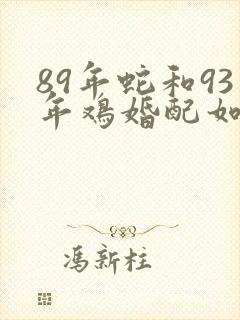 89年蛇和93
年鸡婚配如
冯新柱